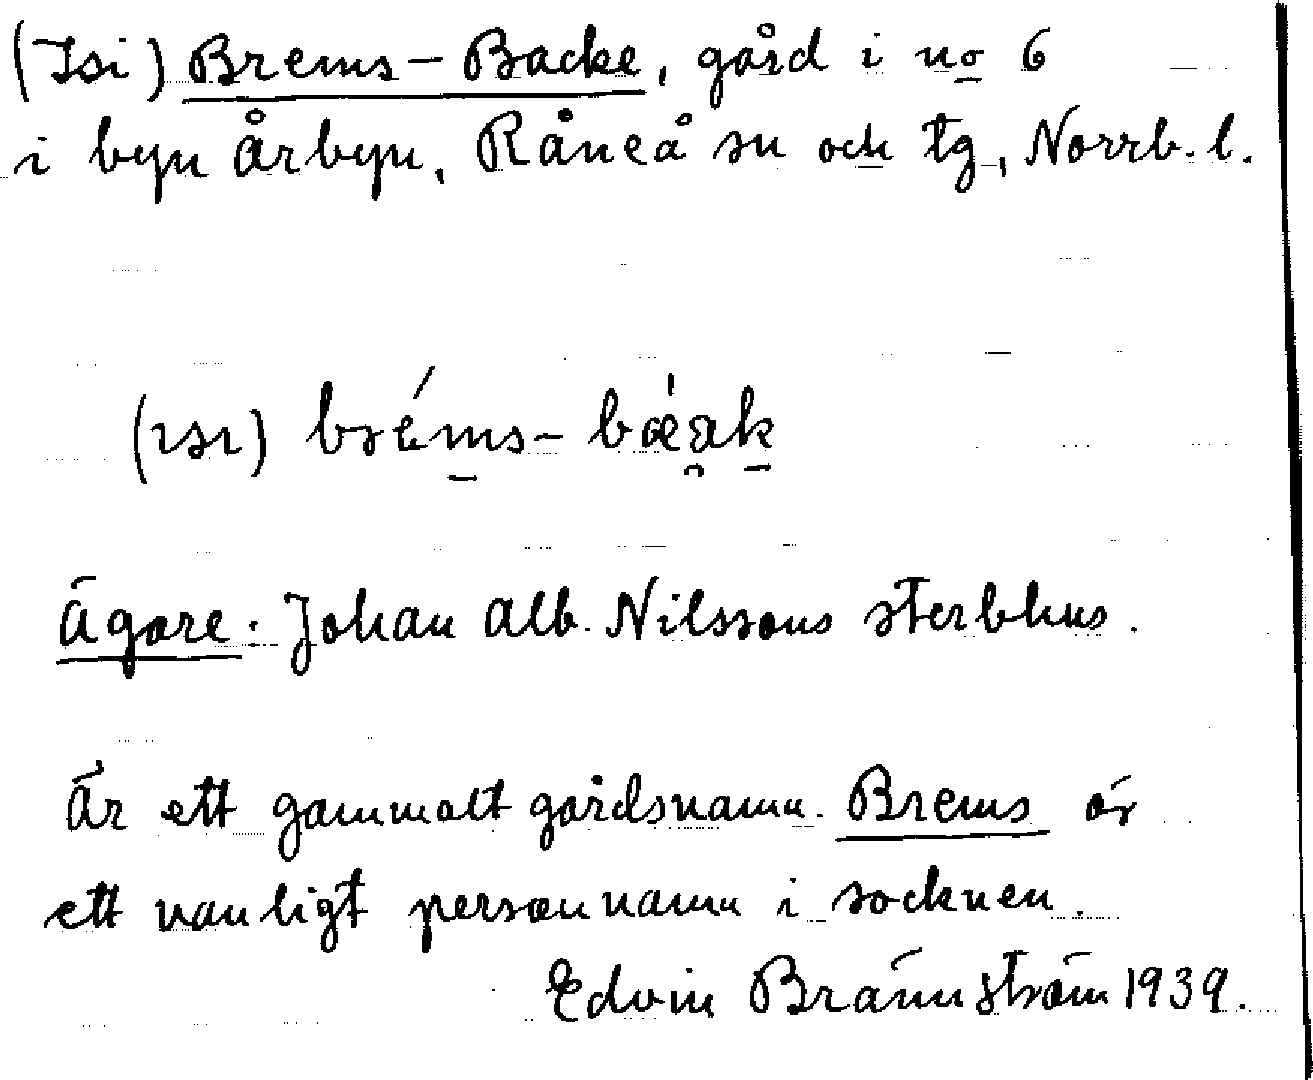 (Isi) Brems-Backe, gård i no 6
i byn Årbyn, Råneå sn och tg, Norrb. l.
(ɪsɪ) bréms- bǽak
Ägare: Johan Alb. Nilssons sterbhus.
Är ett gammalt gårdsnamn. Brems är
ett vanligt personnamn i socknen.
Edvin Brännström 1939.